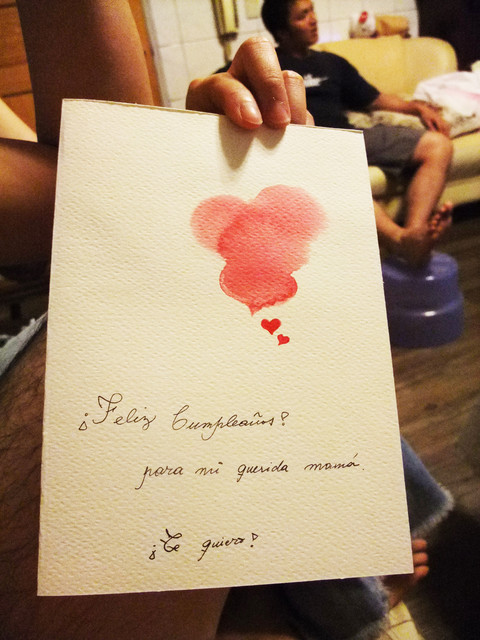 ¡Feliz Cumpleaños!
para mi querida mamá.
¡Te quiero!